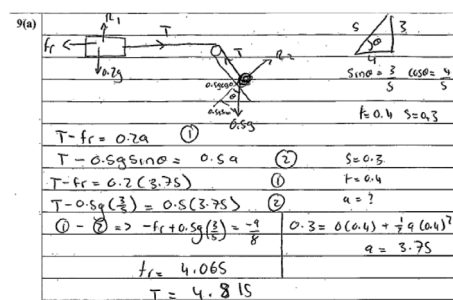 9(a)
R₁
fr
T
0.2g
T
R₂
0.5gcosθ
θ
0.5g
5 3
θ
4
sinθ = 3/5 cosθ = 4/5
t=0.4 s=0.3
T-fr = 0.2a ①
T-0.5gsinθ = 0.5a ② s=0.3
T-fr = 0.2(3.75) ① t=0.4
T-0.5g(3/5) = 0.5(3.75) ② a=?
①-② => -fr+0.5g(3/5) = -9/8 0.3=0(0.4)+½a(0.4)²
a = 3.75
fr = 4.065
T = 4.815